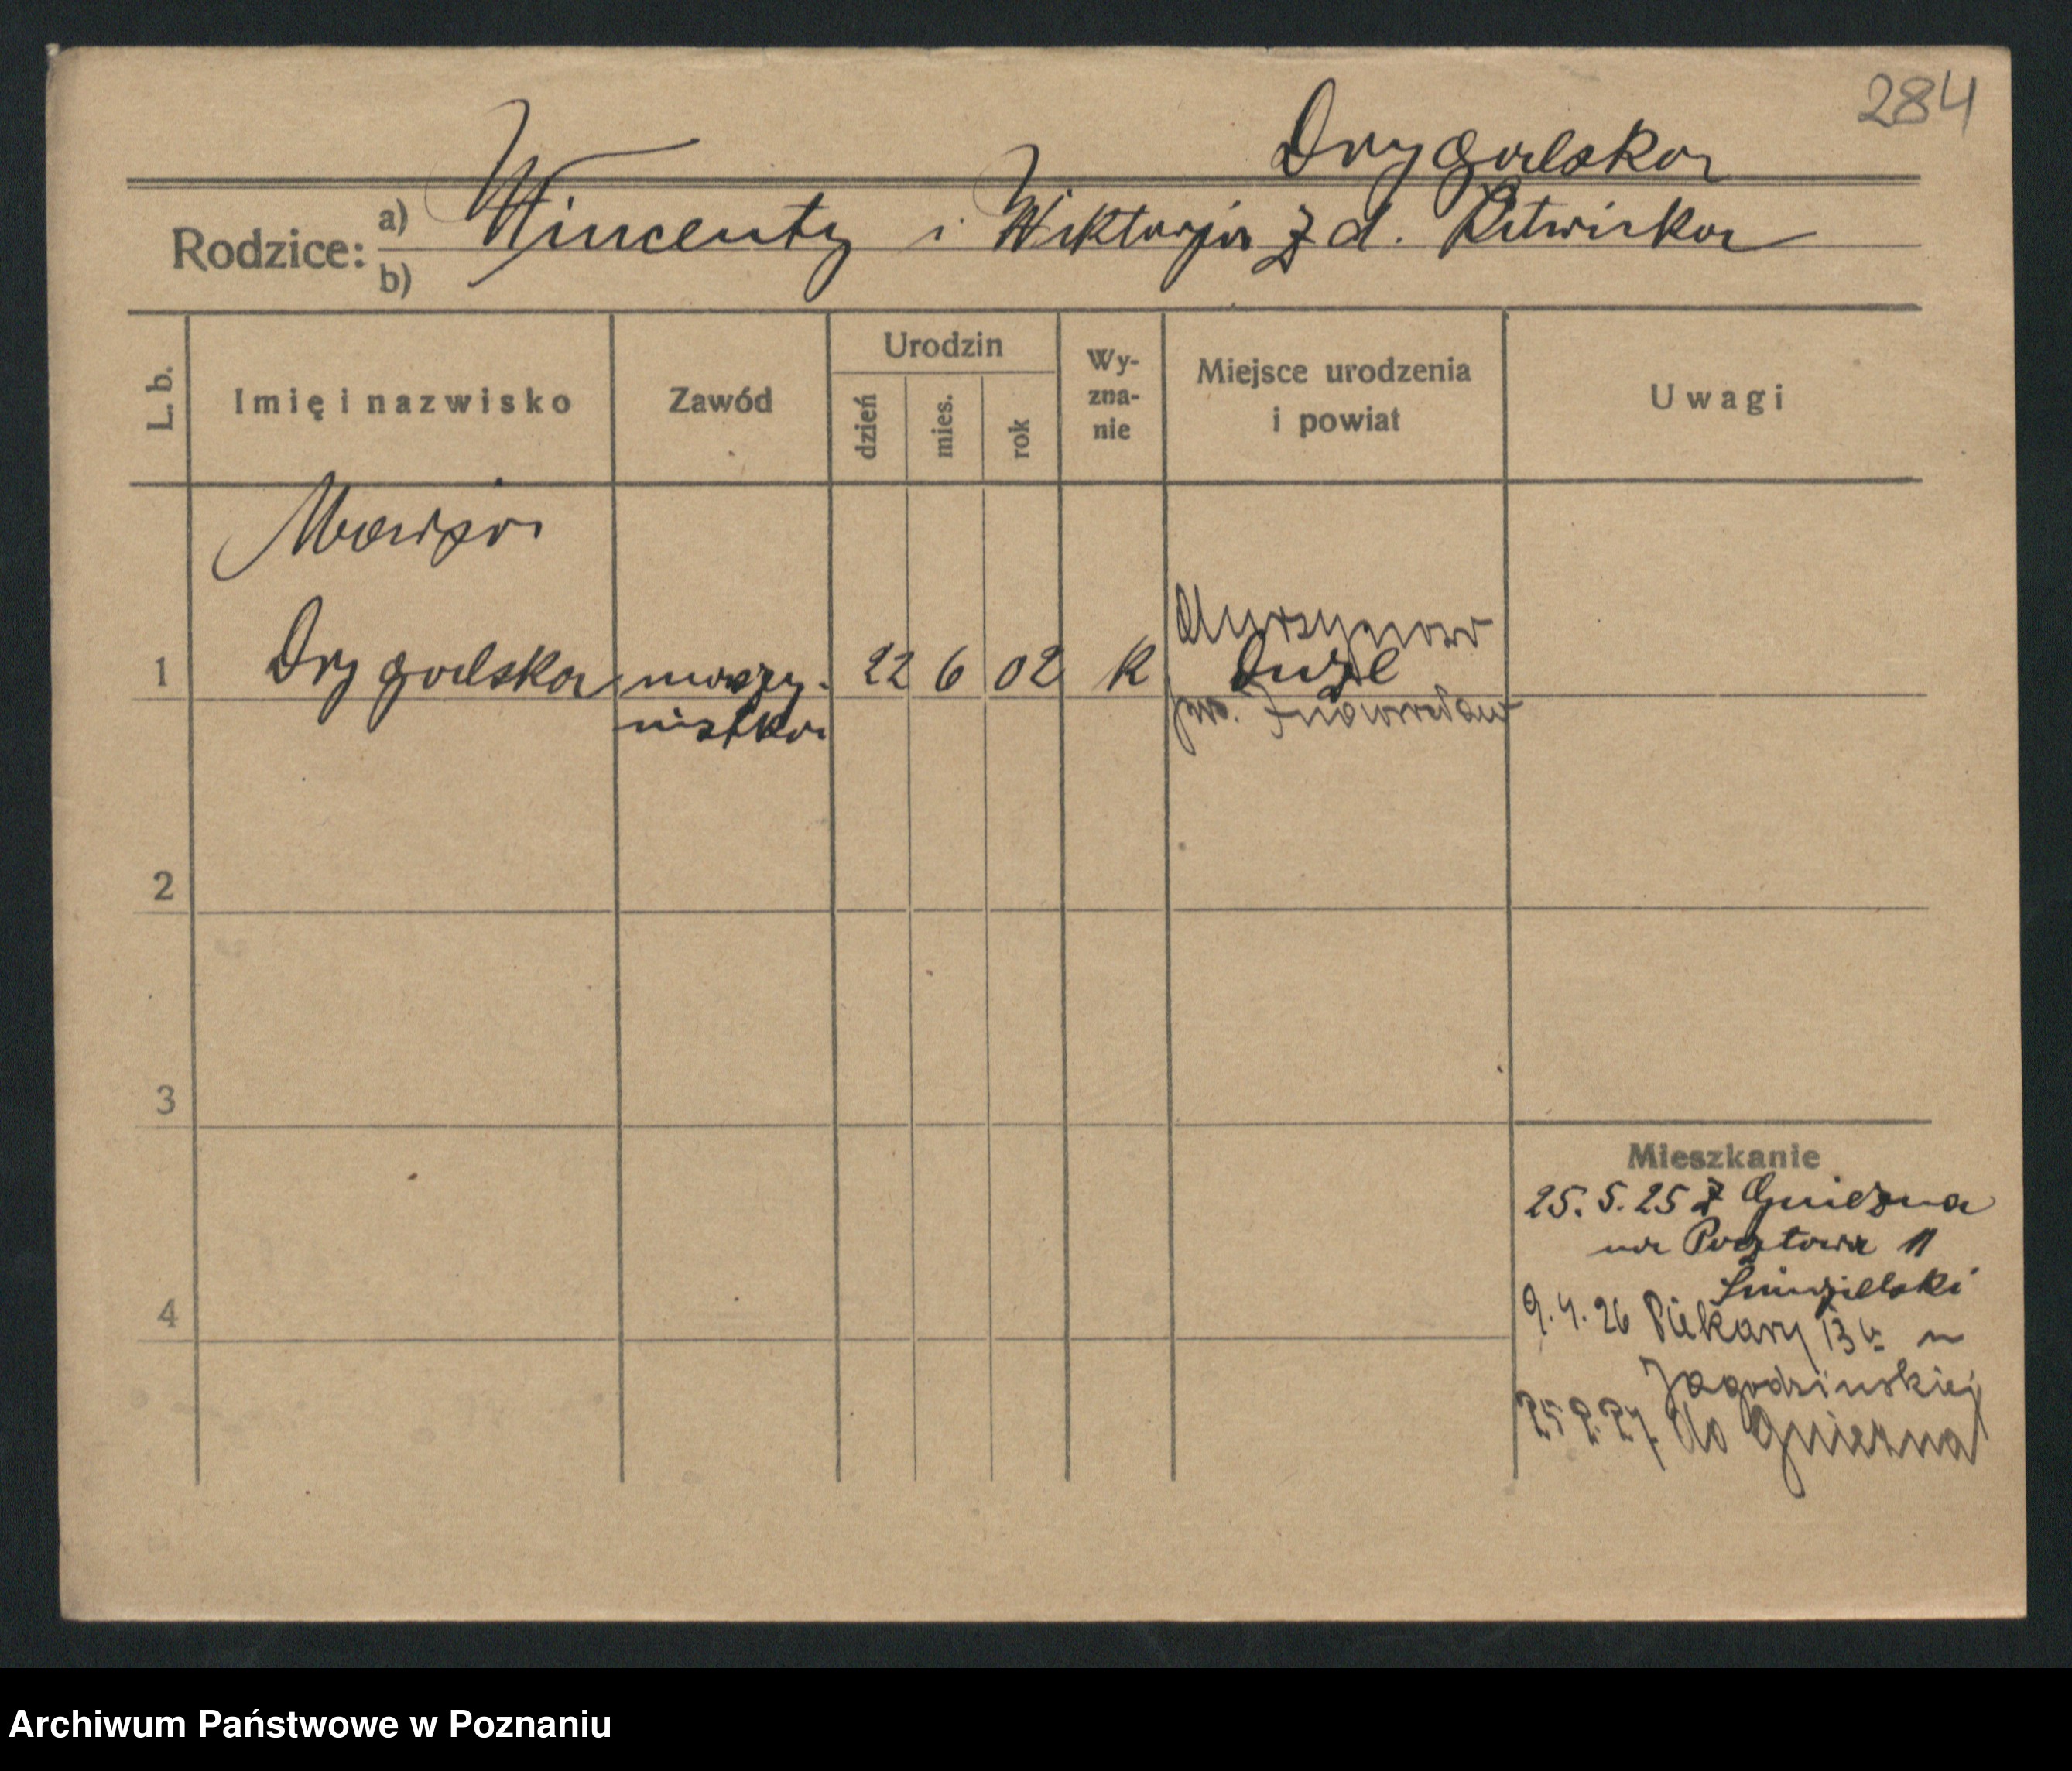 284
Drygalska
Rodzice: a) Wincenty i Wiktorja z d.
b)
L. b.
Imię i nazwisko
Zawód
Urodzin
dzień
mies.
rok
Wy-
zna-
nie
Miejsce urodzenia
i powiat
Uwagi
Marja
1 Drygalska maszy- 22 6 02 K
nistka
Duże
pow. Inowrocław
2
3
4
Mieszkanie
25. 5. 25 z Gniezna
na Pocztowa 11
9. 4. 26 Piekary 13
Jagodzinskiej
do Gniezna
Archiwum Państwowe w Poznaniu